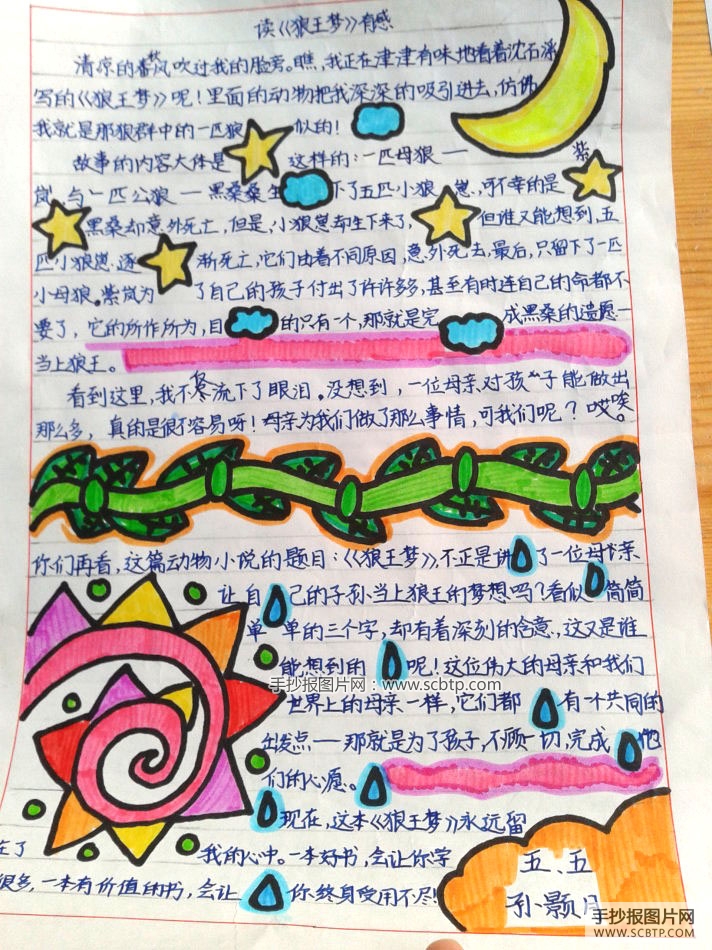 读《狼王梦》有感
清凉的春风吹过我的脸旁。瞧,我正在津津有味地看着沈石溪
写的《狼王梦》呢!里面的动物把我深深的吸引进去,仿佛
我就是那狼群中的一匹狼似的!
故事的内容大体是这样的:一匹母狼——紫
岚与一匹公狼——黑桑生下了五匹小狼崽,可不幸的是
黑桑却意外死亡,但是,小狼崽却生下来了,但谁又能想到,五
匹小狼崽逐渐死亡,它们由着不同原因,意外死去,最后,只留下了一匹
小母狼。紫岚为了自己的孩子付出了许许多多,甚至有时连自己的命都不
要了,它的所作所为,目的只有一个,那就是完成黑桑的遗愿—
当上狼王。
看到这里,我不忍流下了眼泪。没想到,一位母亲对孩子能做出
那么多,真的是很不容易呀!母亲为我们做了那么事情,可我们呢?哎唉。
你们再看,这篇动物小说的题目:《狼王梦》,不正是讲了一位母亲
让自己的子孙当上狼王的梦想吗?看似简简
单单的三个字,却有着深刻的含意,这又是谁
能想到的呢!这位伟大的母亲和我们
世界上的母亲一样,它们都有一个共同的
出发点——那就是为了孩子,不顾一切,完成他
们的心愿。
现在,这本《狼王梦》永远留
在了我的心中。一本好书,会让你学
很多,一本有价值的书,会让你终身受用不尽!
五、五
孙颢月
手抄报图片网:www.scbtp.com
手抄报图片网
WWW.SCBTP.COM